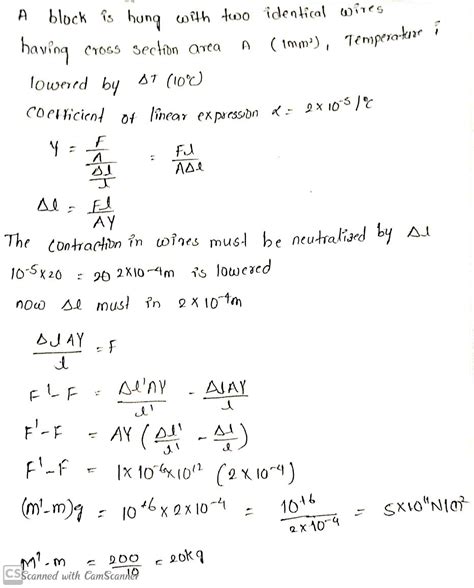 A block is hung with two identical wires
having cross section area A (1mm²), Temperature i
lowered by ΔT (10°C)
coefficient of linear expression α = 2 x 10-5/°C
Y = F/A / Δl/l = Fl/AΔl
Δl = Fl/AY
The contraction in wires must be neutralised by Δl
10-5x20 = 20 2x10-4m is lowered
now Δl must in 2 x 10-4m
ΔlAY/l = F
F'-F = Δl'AY/l' - ΔlAY/l
F'-F = AY (Δl'/l' - Δl/l)
F'-F = 1x10-6x10¹² (2x10-4)
(m'-m)g = 10+6 x 2x10-4 = 10+6/2x10-4 = 5x10''N/m²
m'-m = 200/10 = 20kg
CS Scanned with CamScanner